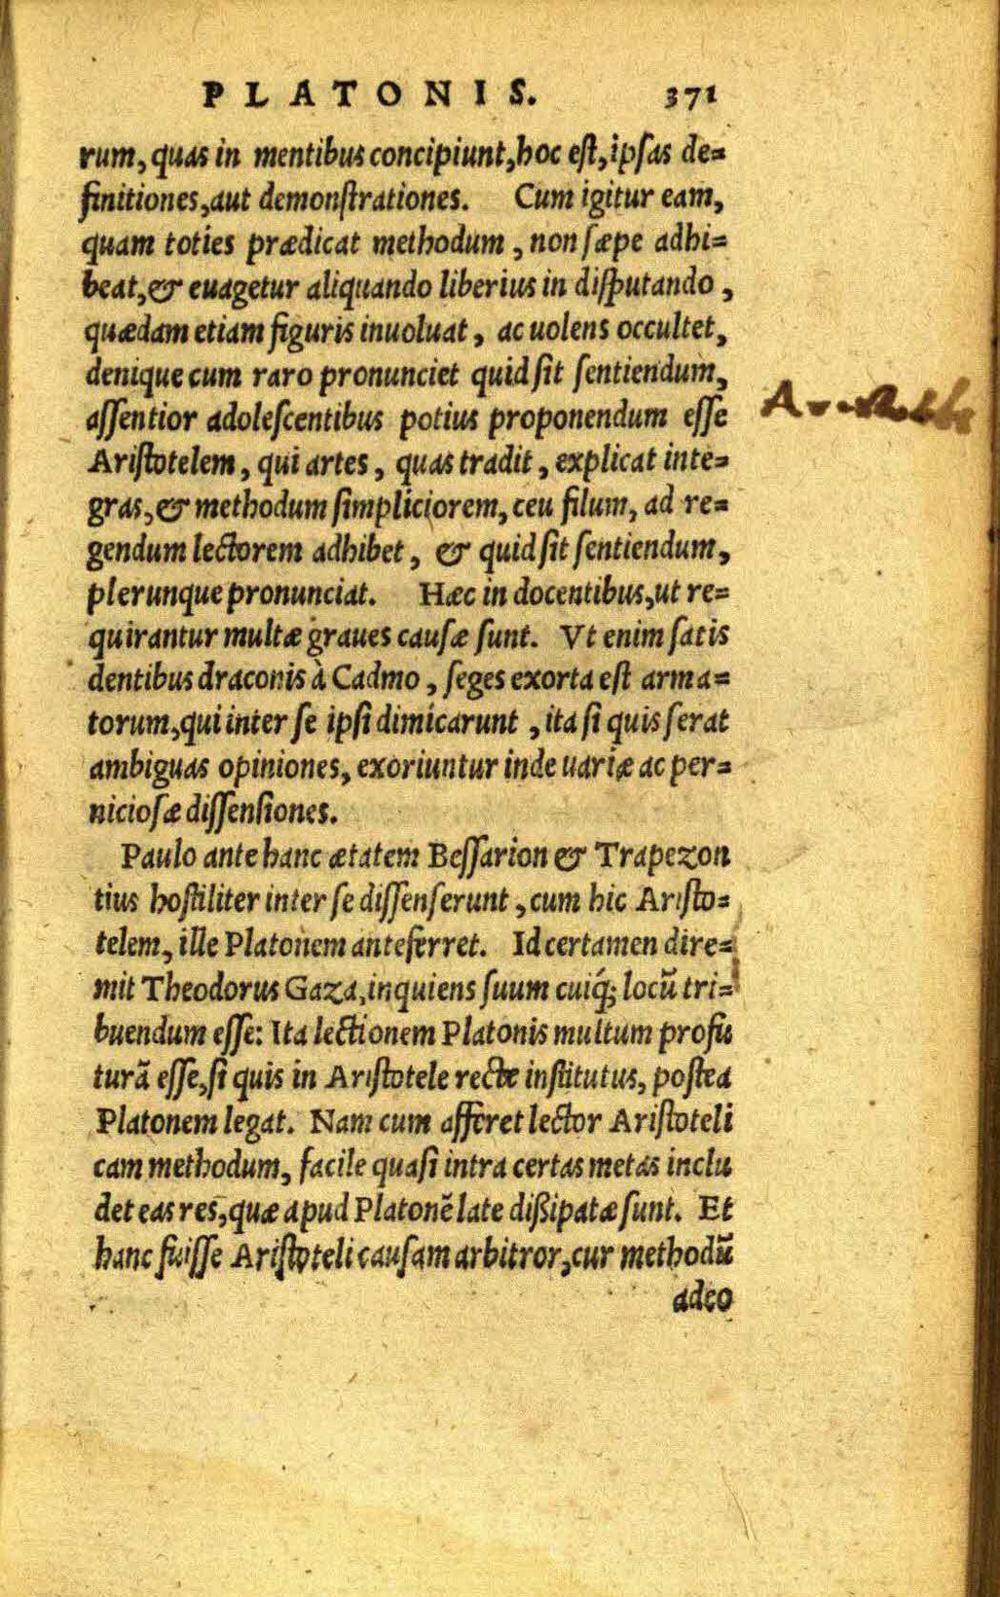 PLATONIS. 371
rum, quas in mentibus concipiunt, hoc est, ipsas de=
finitiones, aut demonstrationes. Cum igitur eam,
quam toties prædicat methodum, non sæpe adhi=
beat, & euagetur aliquando liberius in disputando,
quædam etiam figuris inuoluat, ac uolens occultet,
denique cum raro pronunciet quid sit sentiendum,
assentior adolescentibus potius proponendum esse
Aristotelem, qui artes, quas tradit, explicat inte=
gras, & methodum simpliciorem, ceu filum, ad re=
gendum lectorem adhibet, & quid sit sentiendum,
plerunque pronunciat. Hæc in docentibus, ut re=
quirantur multæ graues causæ sunt. Vt enim satis
dentibus draconis à Cadmo, seges exorta est arma=
torum, qui inter se ipsi dimicarunt, ita si quis serat
ambiguas opiniones, exoriuntur inde uariæ ac per=
niciosæ dissensiones.
Paulo ante hanc ætatem Bessarion & Trapezon
tius hostiliter inter se dissenserunt, cum hic Aristo=
telem, ille Platonem anteferret. Id certamen dire=
mit Theodorus Gaza, inquiens suum cuiq́; locũ tri=
buendum esse: Ita lectionem Platonis multum profu
turã esse, si quis in Aristotele recte institutus, postea
Platonem legat. Nam cum afferet lector Aristoteli
cam methodum, facile quasi intra certas metas inclu
det eas res, quæ apud Platonẽ late dißipatæ sunt. Et
hanc fuisse Aristoteli causam arbitror, cur methodũ
adeo